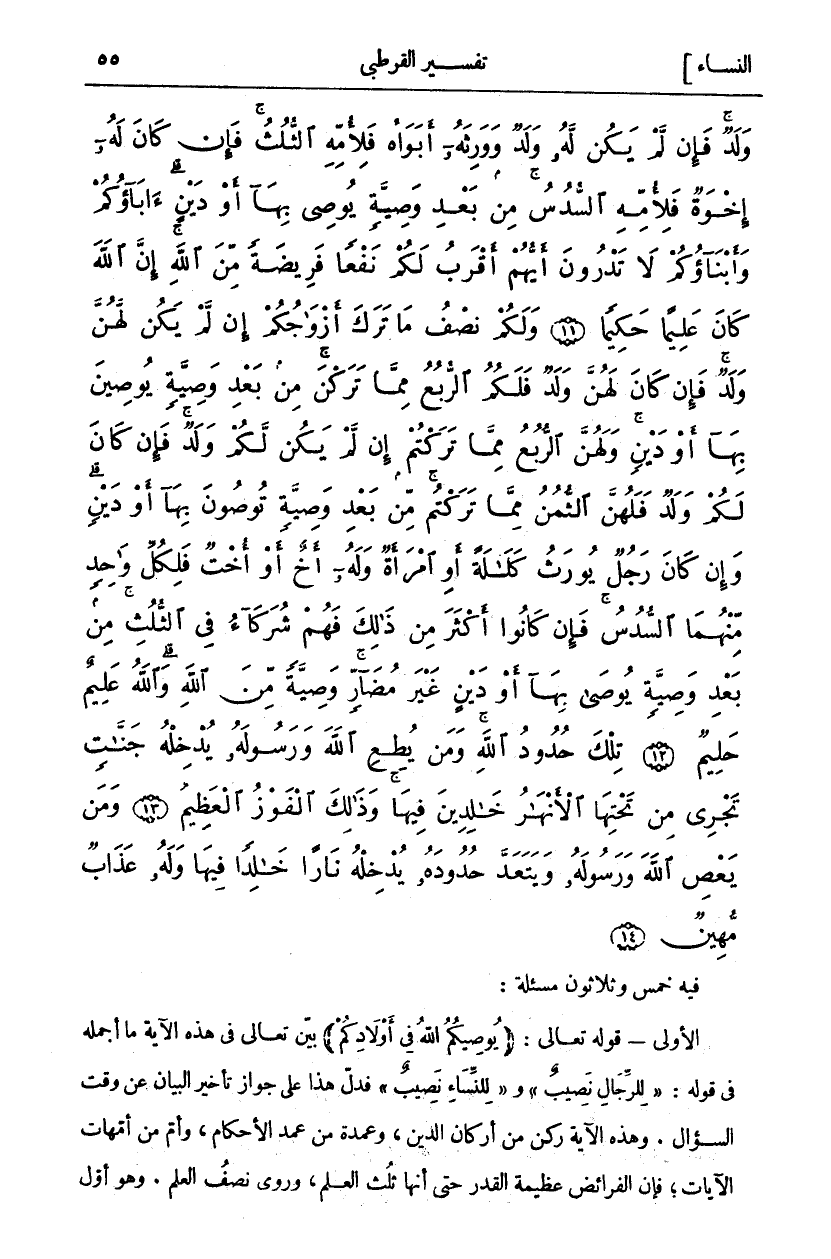 النساء ] تفسير القرطبى ٥٥
وَلَدٌ ۚ فَإِن لَّمْ يَكُن لَّهُۥ وَلَدٌ وَوَرِثَهُۥٓ أَبَوَاهُ فَلِأُمِّهِ ٱلثُّلُثُ ۚ فَإِن كَانَ لَهُۥٓ
إِخْوَةٌ فَلِأُمِّهِ ٱلسُّدُسُ ۚ مِنۢ بَعْدِ وَصِيَّةٍ يُوصِى بِهَآ أَوْ دَيْنٍ ۗ ءَابَآؤُكُمْ
وَأَبْنَآؤُكُمْ لَا تَدْرُونَ أَيُّهُمْ أَقْرَبُ لَكُمْ نَفْعًا ۚ فَرِيضَةً مِّنَ ٱللَّهِ ۗ إِنَّ ٱللَّهَ
كَانَ عَلِيمًا حَكِيمًا ﴿١١﴾ وَلَكُمْ نِصْفُ مَا تَرَكَ أَزْوَٰجُكُمْ إِن لَّمْ يَكُن لَّهُنَّ
وَلَدٌ ۚ فَإِن كَانَ لَهُنَّ وَلَدٌ فَلَكُمُ ٱلرُّبُعُ مِمَّا تَرَكْنَ ۚ مِنۢ بَعْدِ وَصِيَّةٍ يُوصِينَ
بِهَآ أَوْ دَيْنٍ ۚ وَلَهُنَّ ٱلرُّبُعُ مِمَّا تَرَكْتُمْ إِن لَّمْ يَكُن لَّكُمْ وَلَدٌ ۚ فَإِن كَانَ
لَكُمْ وَلَدٌ فَلَهُنَّ ٱلثُّمُنُ مِمَّا تَرَكْتُم ۚ مِّنۢ بَعْدِ وَصِيَّةٍ تُوصُونَ بِهَآ أَوْ دَيْنٍ ۗ
وَإِن كَانَ رَجُلٌ يُورَثُ كَلَٰلَةً أَوِ ٱمْرَأَةٌ وَلَهُۥٓ أَخٌ أَوْ أُخْتٌ فَلِكُلِّ وَٰحِدٍ
مِّنْهُمَا ٱلسُّدُسُ ۚ فَإِن كَانُوا أَكْثَرَ مِن ذَٰلِكَ فَهُمْ شُرَكَآءُ فِى ٱلثُّلُثِ ۚ مِنۢ
بَعْدِ وَصِيَّةٍ يُوصَىٰ بِهَآ أَوْ دَيْنٍ غَيْرَ مُضَآرٍّ ۚ وَصِيَّةً مِّنَ ٱللَّهِ ۗ وَٱللَّهُ عَلِيمٌ
حَلِيمٌ ﴿١٢﴾ تِلْكَ حُدُودُ ٱللَّهِ ۚ وَمَن يُطِعِ ٱللَّهَ وَرَسُولَهُۥ يُدْخِلْهُ جَنَّٰتٍ
تَجْرِى مِن تَحْتِهَا ٱلْأَنْهَٰرُ خَٰلِدِينَ فِيهَا ۚ وَذَٰلِكَ ٱلْفَوْزُ ٱلْعَظِيمُ ﴿١٣﴾ وَمَن
يَعْصِ ٱللَّهَ وَرَسُولَهُۥ وَيَتَعَدَّ حُدُودَهُۥ يُدْخِلْهُ نَارًا خَٰلِدًا فِيهَا وَلَهُۥ عَذَابٌ
مُّهِينٌ ﴿١٤﴾
فيه خمس وثلاثون مسئلة :
الأولى – قوله تعالى : ﴿يُوصِيكُمُ اللهُ فِي أَوْلَادِكُمْ﴾ بيّن تعالى فى هذه الآية ما أجمله
فى قوله : « لِلرِّجَالِ نَصِيبٌ » و « لِلنِّسَاءِ نَصِيبٌ » فدلّ هذا على جواز تأخير البيان عن وقت
السؤال . وهذه الآية ركن من أركان الدين ، وعمدة من عمد الأحكام ، وأتم من أمّهات
الآيات ؛ فإن الفرائض عظيمة القدر حتى أنها ثُلُث العلم ، وروى نصفُ العلم . وهو أوّل